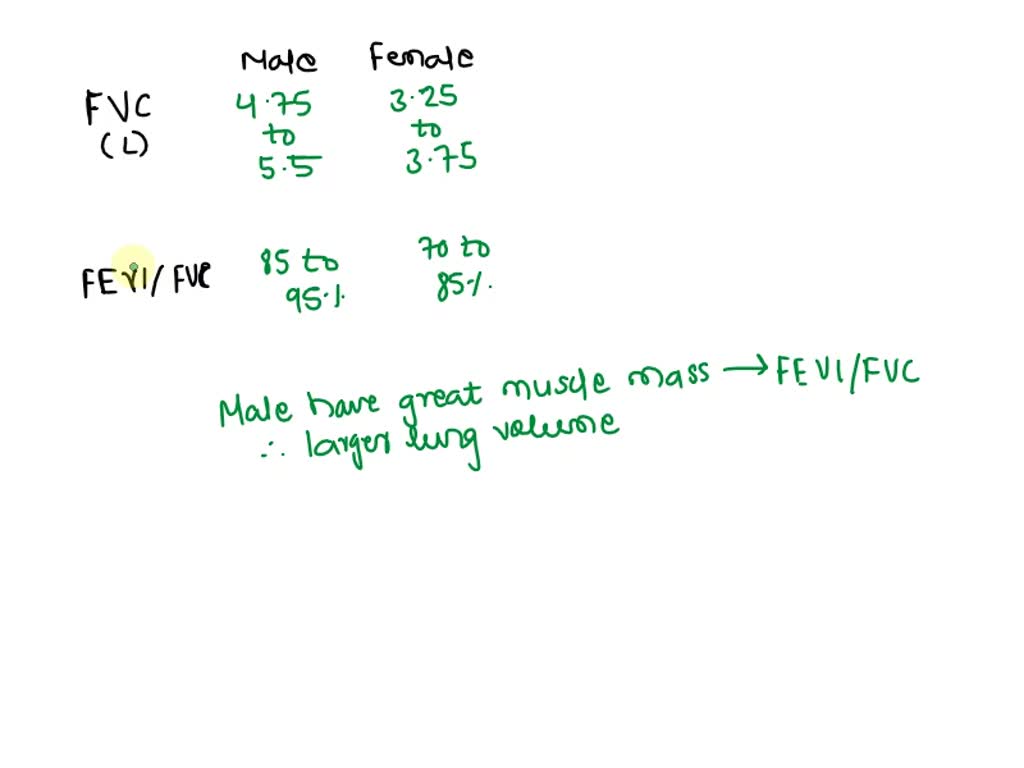 Male Female
FVC 4.75 3.25
(L) to to
5.5 3.75
FEV1/FVC 85 to 70 to
95% 85%
Male have great muscle mass → FEV1/FVC
∴ larger lung volume